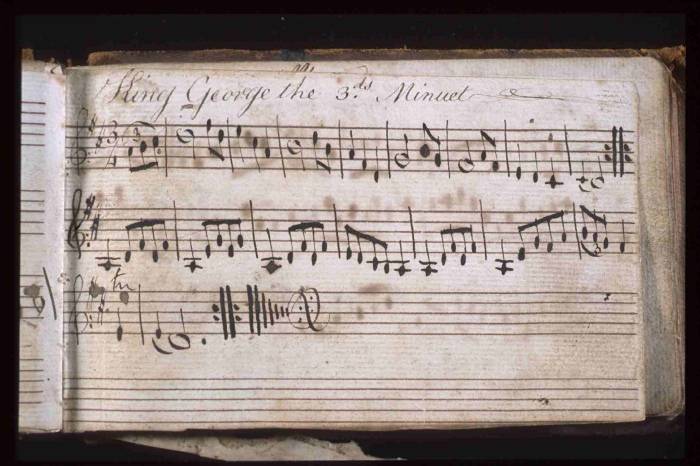 King George the 3.ds Minuet
3
4
3
tr